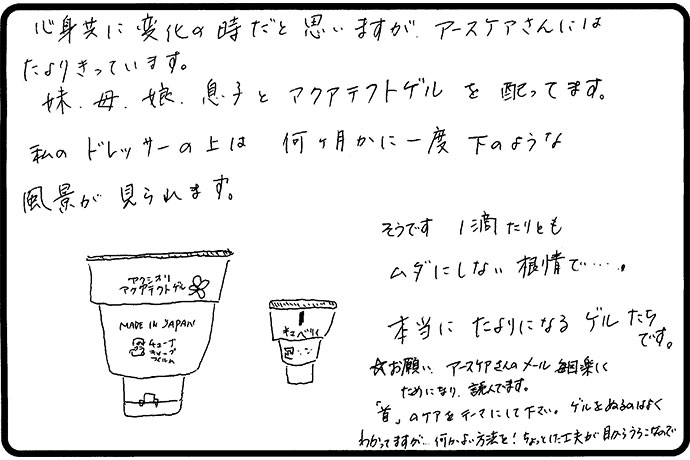 心身共に変化の時だと思いますが、アースケアさんには
たよりきっています。
妹、母、娘、息子とアクアテクトゲルを配ってます。
私のドレッサーの上は 何ヶ月かに一度 下のような
風景が見られます。
そうです 1滴たりとも
ムダにしない根情で……。
本当に たよりになる ゲルたち
です。
アクシズリ
アクアテクトゲル
MADE IN JAPAN
チューブ
☆お願い、アースケアさんのメール 毎回楽しく
ためになり、読んでます。
「首」のケアをテーマにして下さい。ゲルをぬるのはよく
わかってますが、何かよい方法を!ちょっとした工夫が目からうろこなので